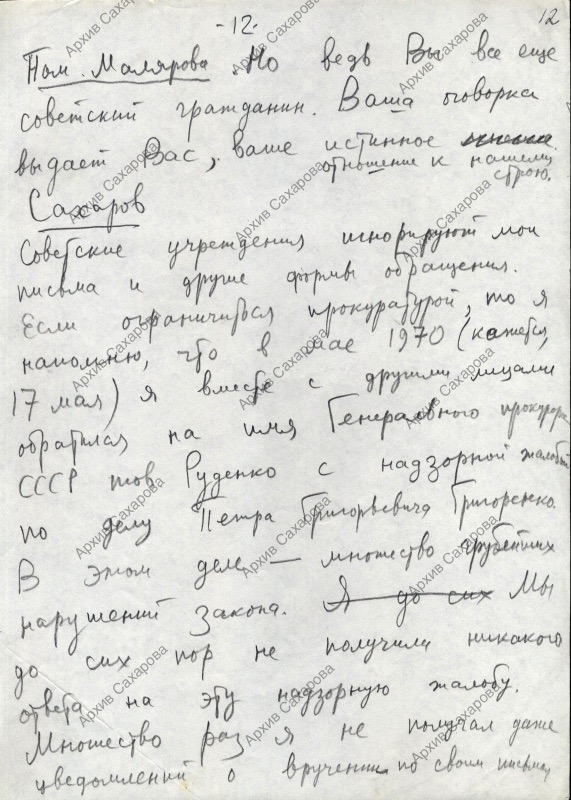 -12-
12
Пом. Малярова Но ведь Вы все еще
советский гражданин. Ваша оговорка
выдает Вас, ваше истинное
отношение к нашему
строю.
Сахаров
Советские учреждения игнорируют мои
письма и другие формы обращения.
Если ограничиться прокуратурой, то я
напомню, что в мае 1970 (кажется,
17 мая) я вместе с другими лицами
обратился на имя Генерального прокурора
СССР тов Руденко с надзорной жалобой
по делу Петра Григорьевича Григоренко.
В этом деле — множество грубейших
нарушений закона. Я до сих Мы
до сих пор не получили никакого
ответа на эту надзорную жалобу.
Множество раз я не получал даже
уведомлений о вручении по своим письмам
Архив Сахарова